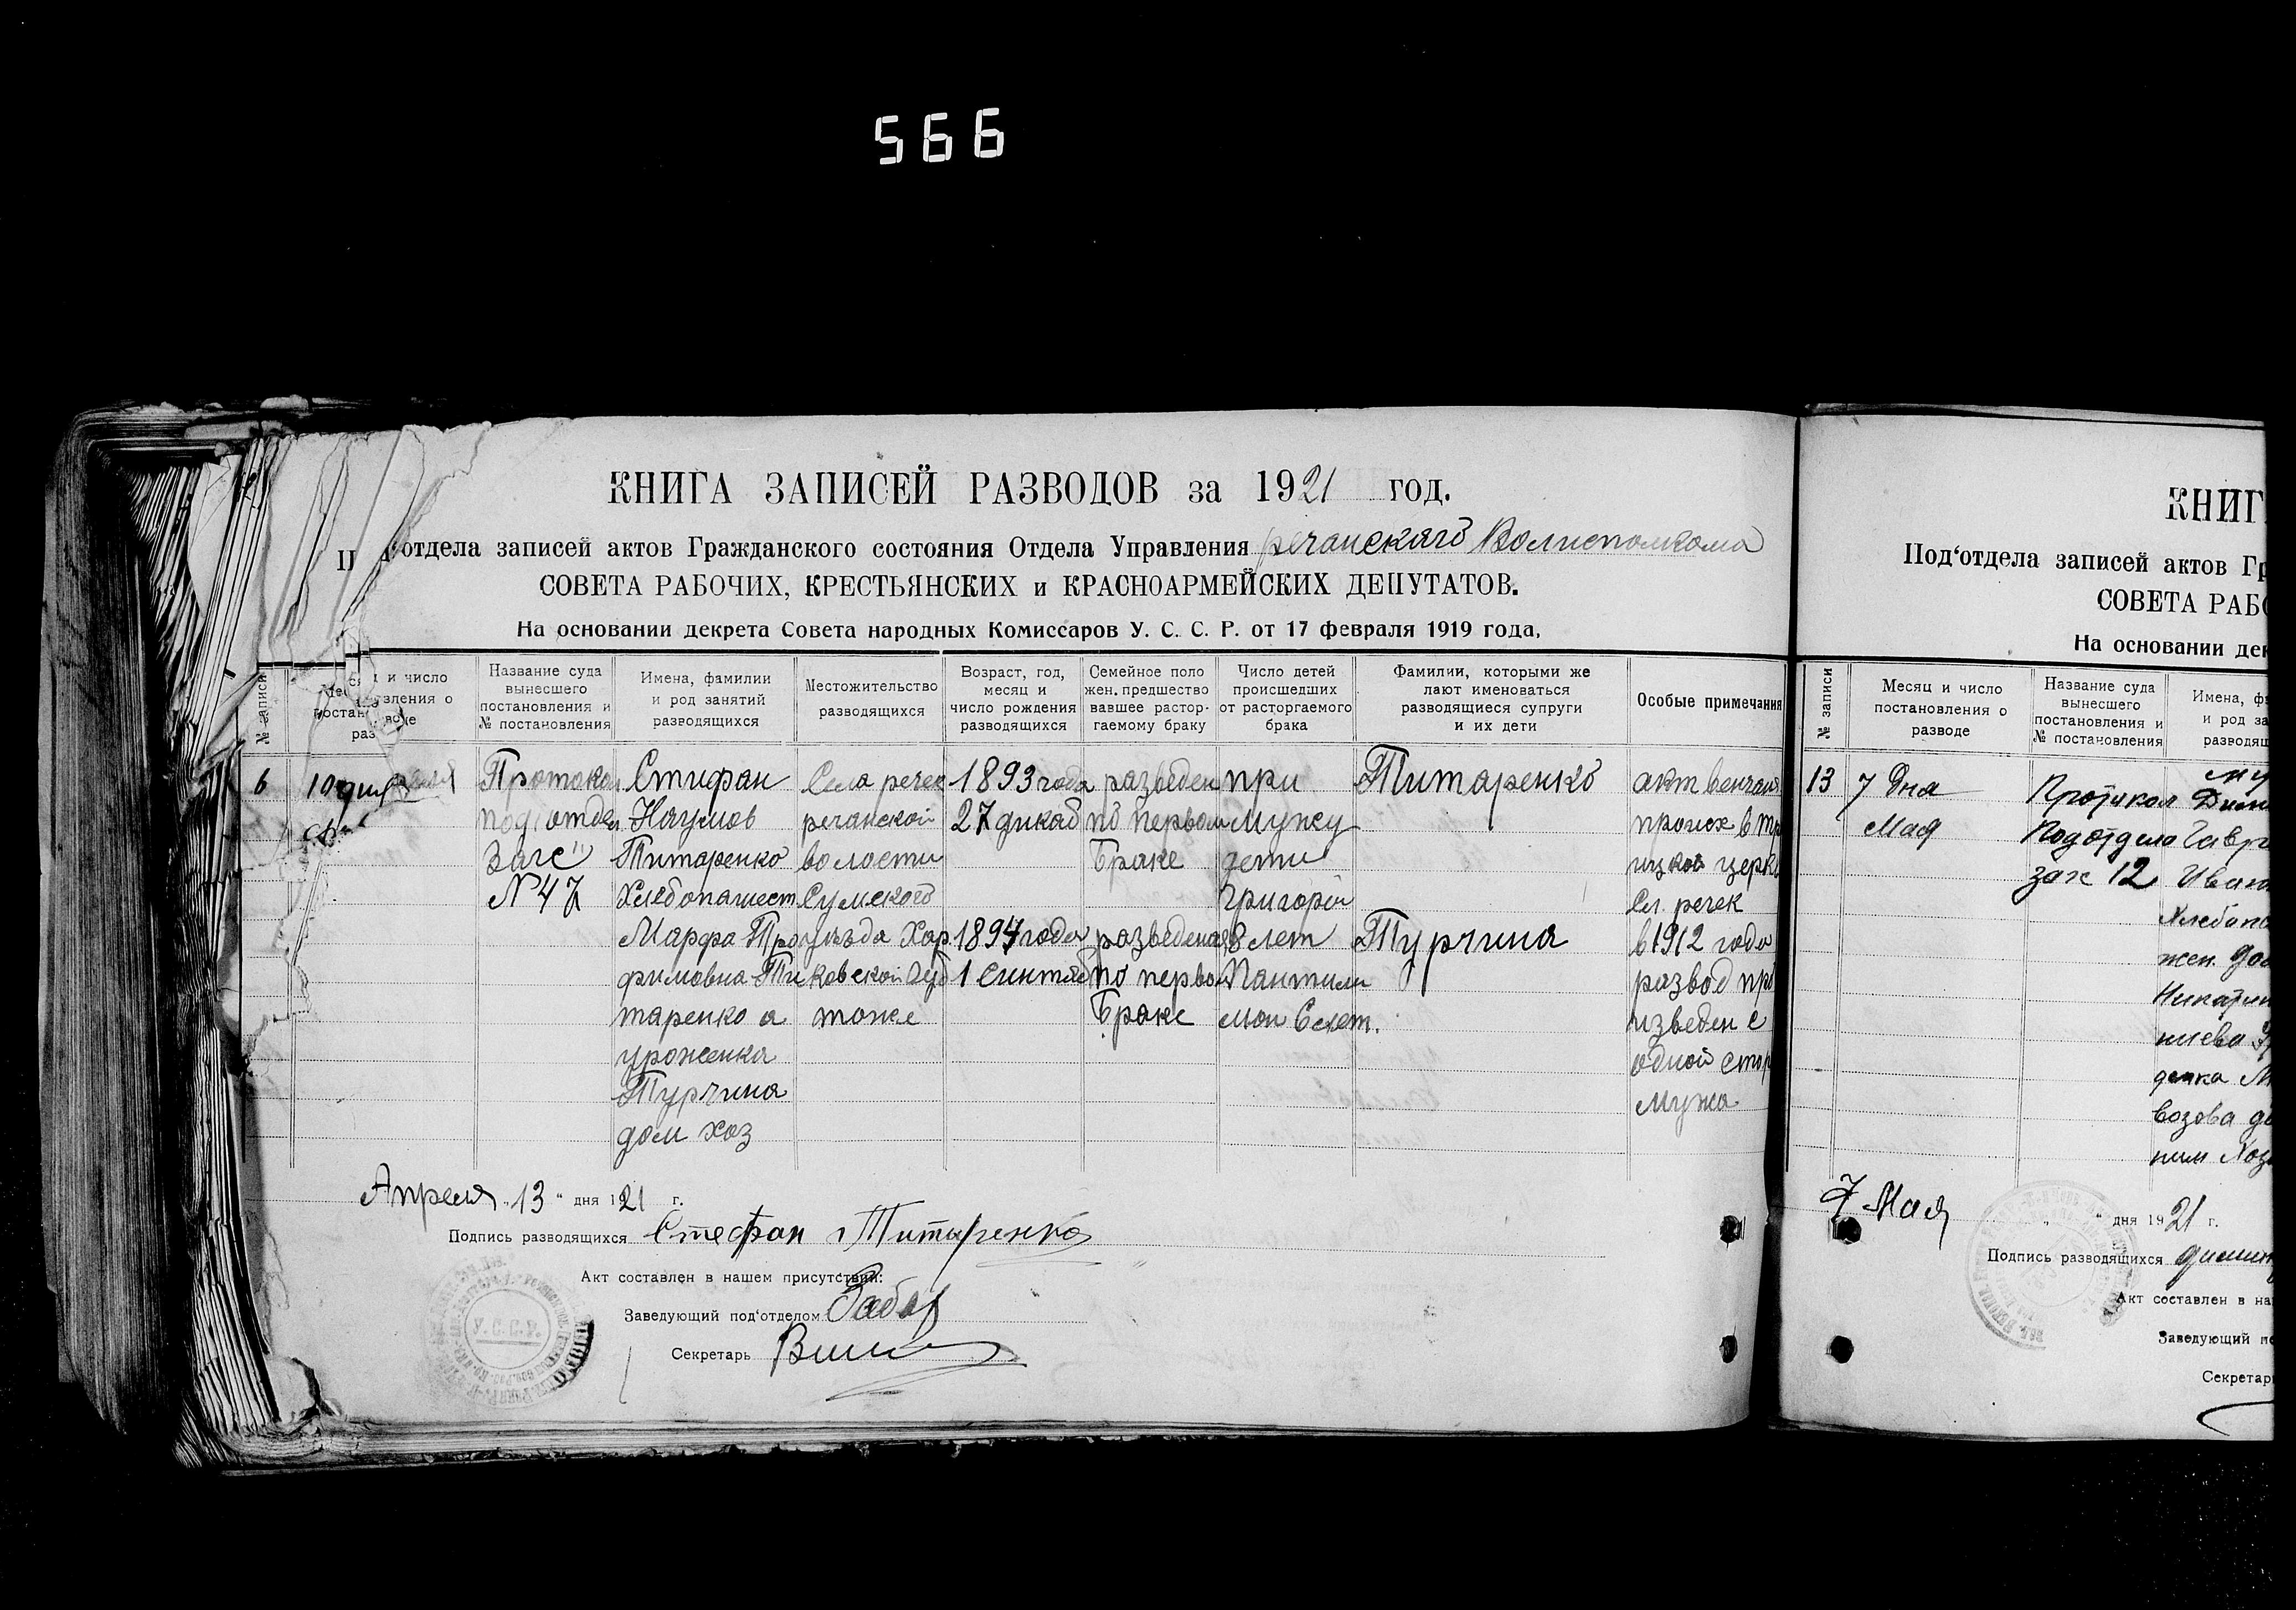 566
КНИГА ЗАПИСЕЙ РАЗВОДОВ за 1921 год.
отдела записей актов Гражданского состояния Отдела Управления речанскаго Волисполкома
СОВЕТА РАБОЧИХ, КРЕСТЬЯНСКИХ и КРАСНОАРМЕЙСКИХ ДЕПУТАТОВ.
На основании декрета Совета народных Комиссаров У. С. С. Р. от 17 февраля 1919 года,
№ записи
и число
постановления о
разводе
Название суда
вынесшего
постановления и
№ постановления
Имена, фамилии
и род занятий
разводящихся
Местожительство
разводящихся
Возраст, год,
месяц и
число рождения
разводящихся
Семейное поло
жен. предшество
вавшее растор-
гаемому браку
Число детей
происшедших
от расторгаемого
брака
Фамилии, которыми же
лают именоваться
разводящиеся супруги
и их дети
Особые примечания
6
10
Протокол
под отдел
Загс
№ 47
Стифан
Наумов
Титаренко
Хлебопашест
Марфа Тро
фимовна Ти
таренко а
уроженка
Турчина
дом хоз
Села речек
речанской
волости
Сумского
уезда Хар
ковской Губ
тоже
1893 года
27 дикаб
1894 года
1 синтяб
разведен
по первом
Браке
разведена
по первом
Браке
при
Мужу
дети
Григорій
8 лет
Пантили
мон 6 лет.
Титаренко
Турчина
акт венчан
происх в тр
ицкой церкв
Сл. речек
в 1912 года
развод про
изведен с
одной стор
Мужа
Апреля „13“ дня 1921 г.
Подпись разводящихся Стефан Титаренко
Акт составлен в нашем присутствии:
Заведующий под‘отделом
Секретарь
У.С.С.Р.
КНИГ
Под‘отдела записей актов Гр
СОВЕТА РАБО
На основании дек
№ записи
Месяц и число
постановления о
разводе
Название суда
вынесшего
постановления и
№ постановления
Имена, ф
и род за
разводящ
13
7 Дня
Мая
Протокол
Подотдела
загс 12
Гавр
Иван
Хлебопа
жен.
возова
7 Мая
“ дня 1921 г.
Подпись разводящихся
Акт составлен в на
Заведующий по
Секретар